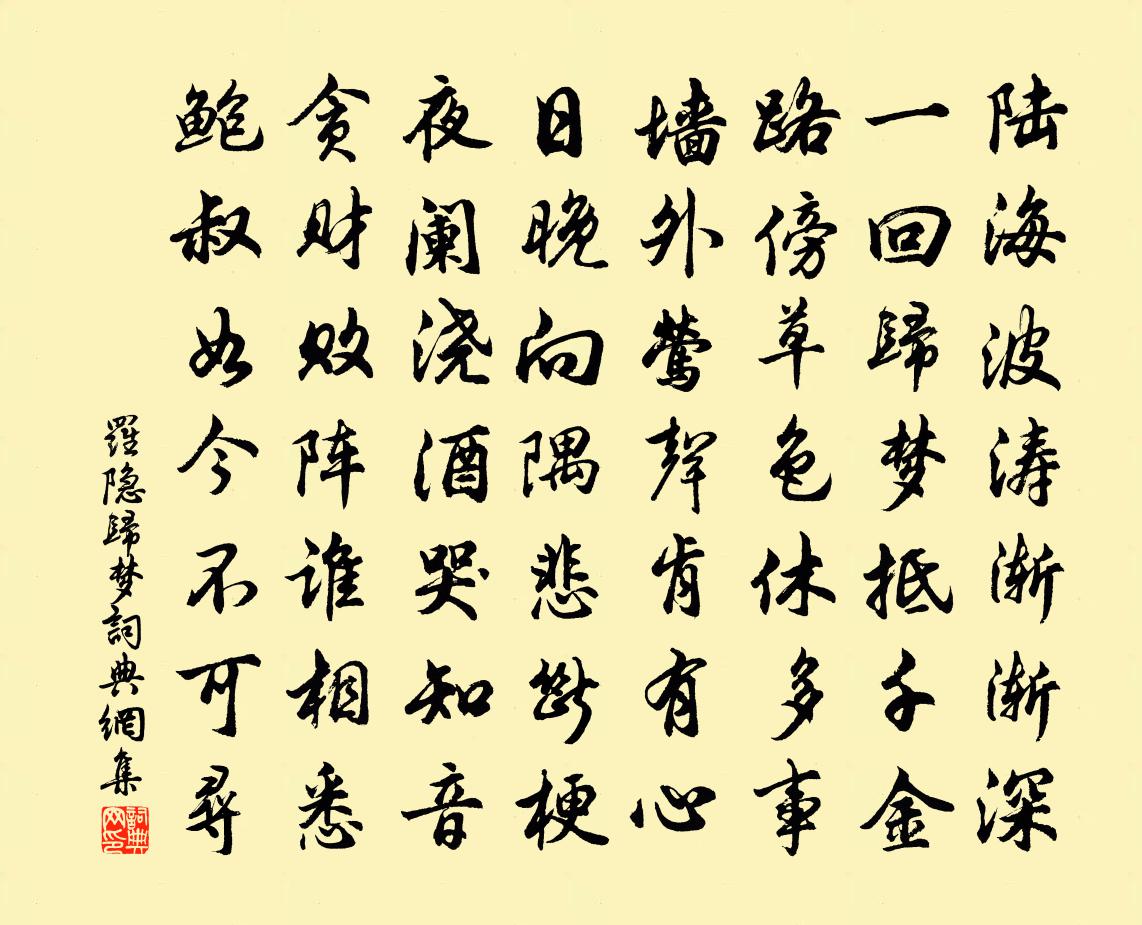 陆海波涛渐渐深
一回歸梦抵千金
路傍草色休多事
墙外莺聲肯有心
日晚向隅悲断梗
夜阑浇酒哭知音
贪财败阵谁相悉
鲍叔如今不可尋
羅隐歸梦詞典網集
詞典网印